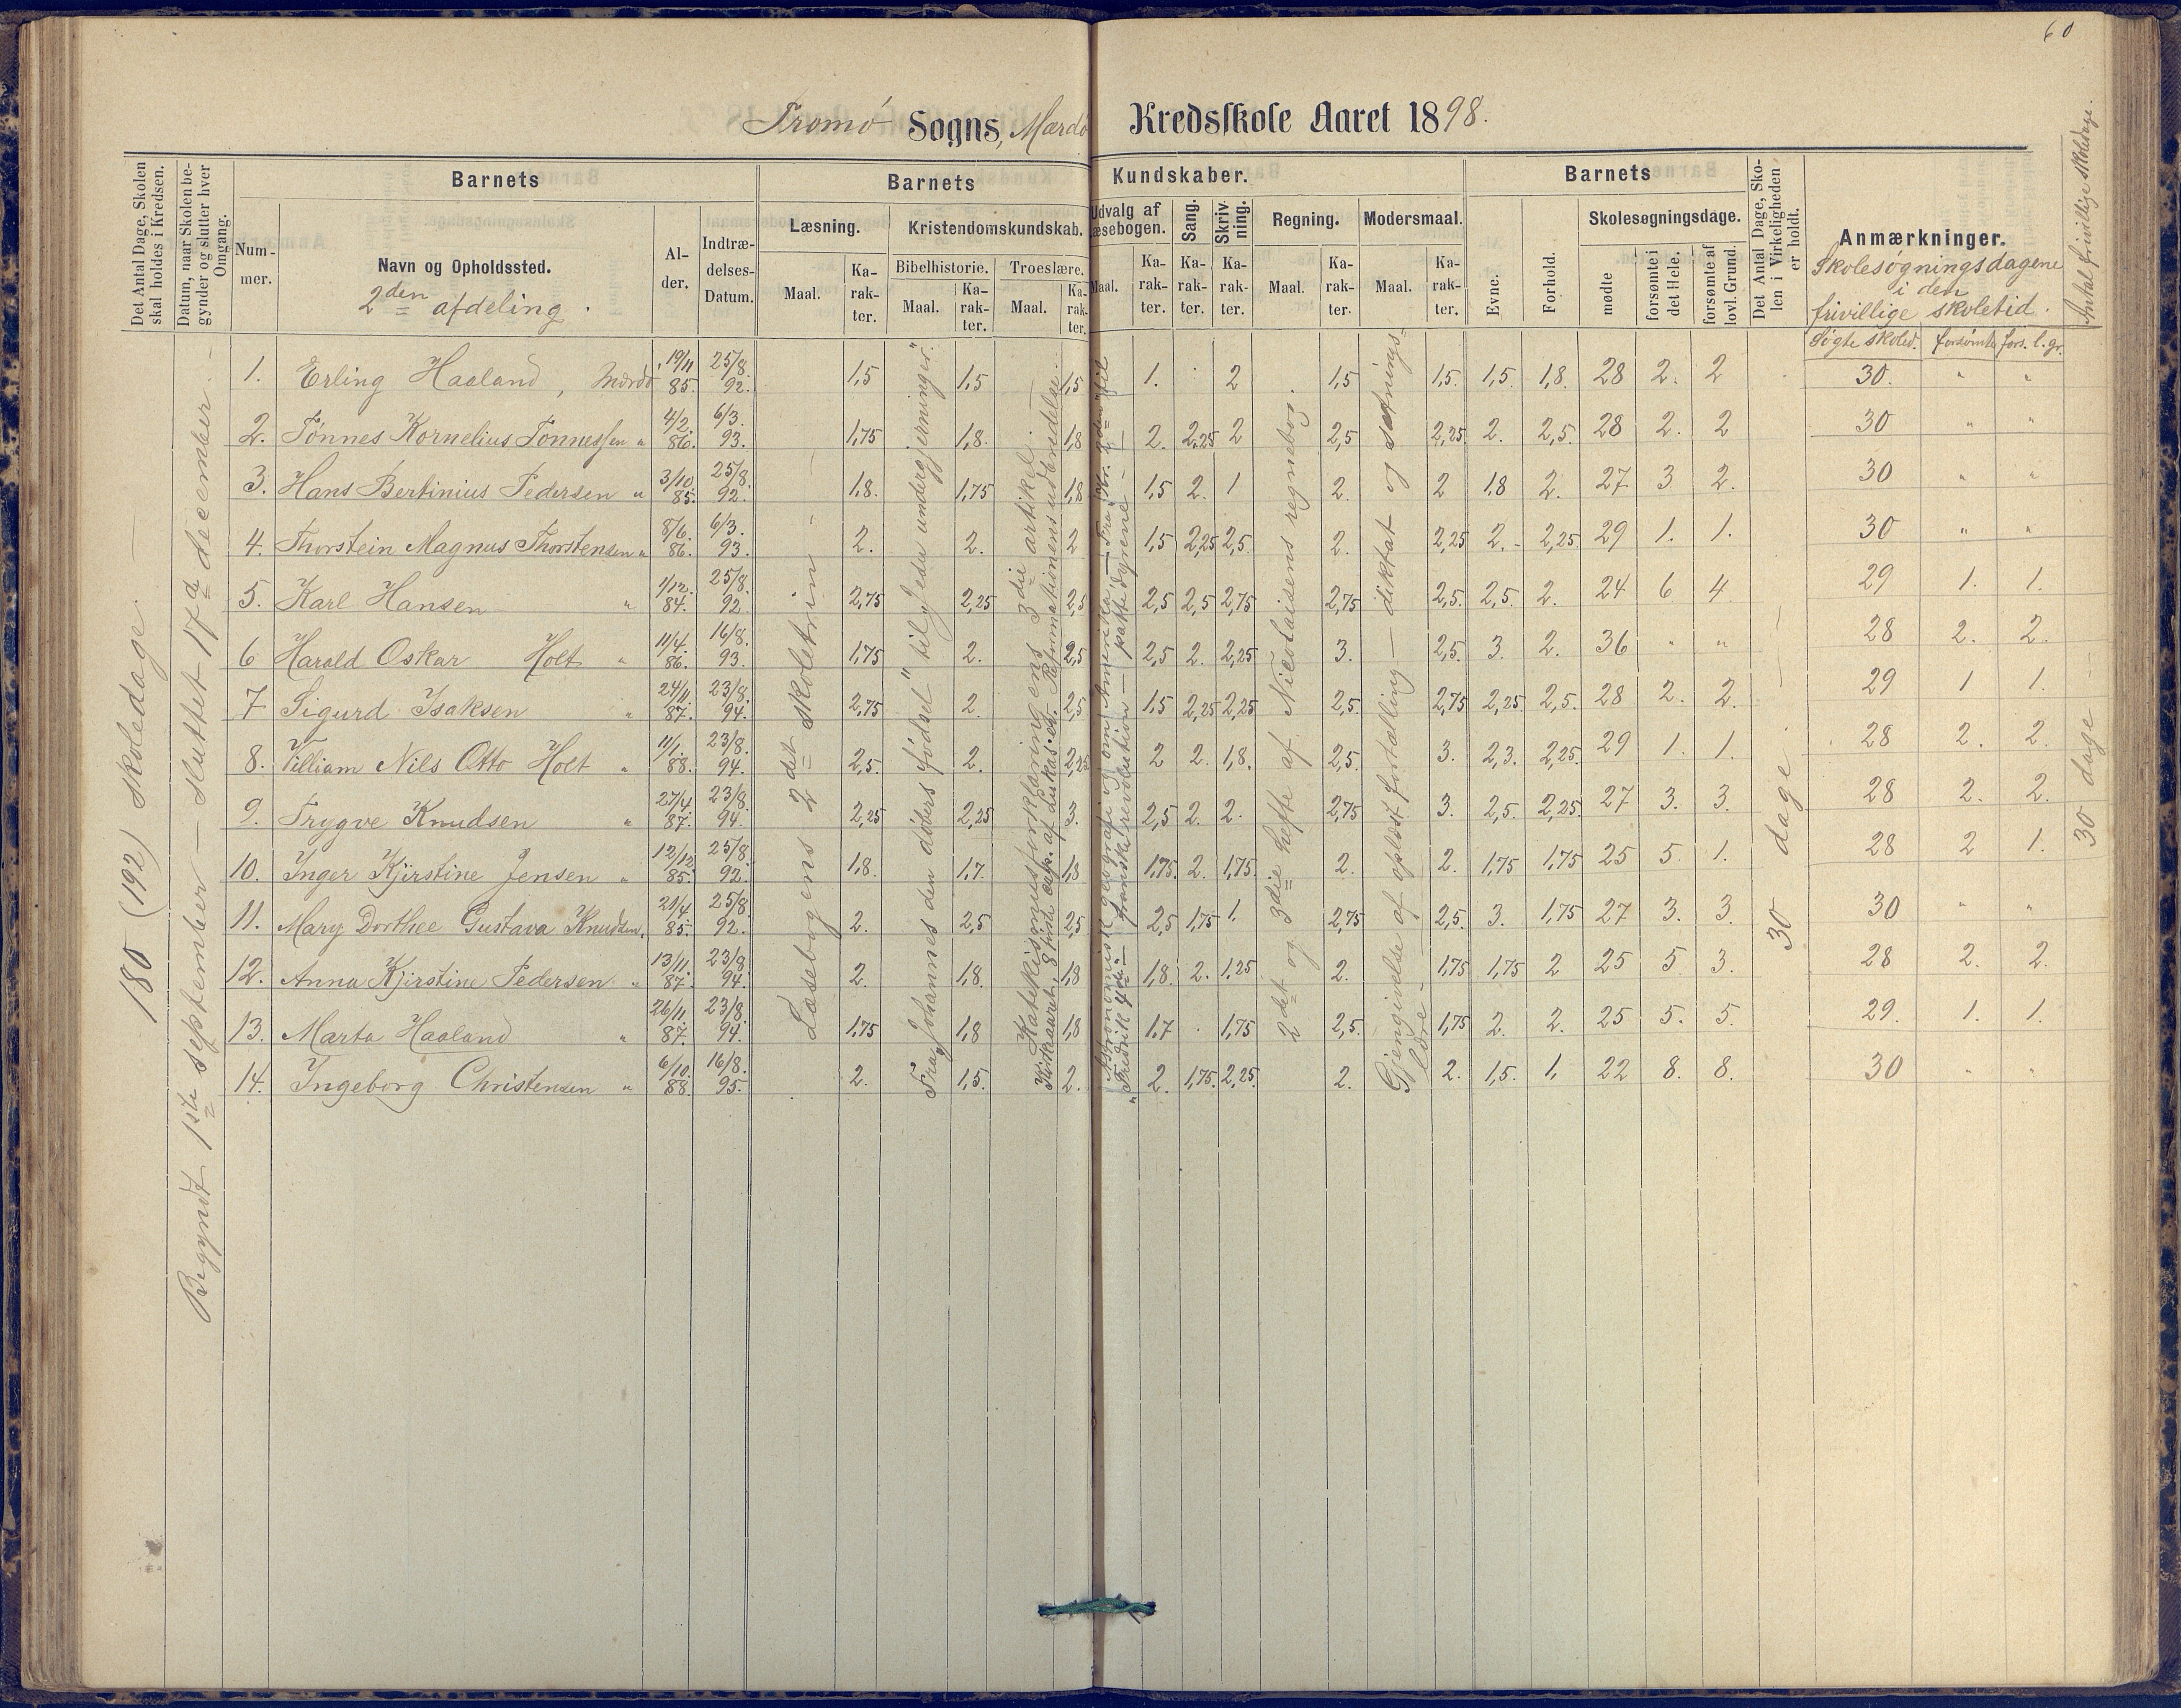 60
Tromø Sogns, Mærdø Kredsskole Aaret 1898.
Det Antal Dage, Skolen skal holdes i Kredsen.
Datum, naar Skolen begynder og slutter hver Omgang.
Barnets
Nummer.
Navn og Opholdssted.
2den afdeling.
Alder.
Indtrædelses-Datum.
Barnets Kundskaber.
Læsning.
Maal.
Karakter.
Kristendomskundskab.
Bibelhistorie.
Maal.
Karakter.
Troeslære.
Maal.
Karakter.
Udvalg af Læsebogen.
Maal.
Karakter.
Sang.
Karakter.
Skrivning.
Karakter.
Regning.
Maal.
Karakter.
Modersmaal.
Maal.
Karakter.
Barnets
Evne.
Forhold.
Skolesøgningsdage.
mødte
forsømte i det Hele.
forsømte af lovl. Grund.
Det Antal Dage, Skolen i Virkeligheden er holdt.
Anmærkninger.
Skolesøgningsdagene i den frivillige skoletid.
Søgte skoled. forsømte fors. l. gr.
Antal frivillige skoledage.
180 (192) skoledage.
Begyndt 1ste september — sluttet 17de december.
Læsebogens 2det skoletrin
Fra "Johannes den døbers fødsel" til "Jedes undergjerninger".
Katekismusforklaringens 3die artikel.
2det og 3die hefte af Nicolaisens regnebog.
Gjengivelse af oplæst fortælling — diktat og sætningslære.
30 dage.
30 dage
1. Erling Haaland, Mærdø 19/11 85. 25/8. 92. 1,5 1,5 1,5 1. 2 1,5 1,5. 1,5. 1,8. 28 2. 2 30. " "
2. Tønnes Kornelius Tønnessen " 4/2. 86. 6/3. 93. 1,75 1,8. 1,8 2. 2,25 2 2,5 2,25 2. 2,5. 28 2. 2 30 " "
3. Hans Bertinius Pedersen " 3/10 85. 25/8. 92. 1,8. 1,75 1,8 1,5 2. 1 2. 2 1,8 2. 27 3 2. 30 " "
4. Thorstein Magnus Thorstensen " 8/6. 86. 6/3. 93. 2. 2. 2 1,5 2,25 2,5. 2. 2,25 2. 2,25 29 1. 1. 30 " "
5. Karl Hansen " 1/12. 84. 25/8. 92 2,75 2,25 2,5 2,5 2,5 2,75 2,75 2,5. 2,5. 2. 24 6 4 29 1. 1.
6 Harald Oskar Holt " 11/4. 86. 16/8. 93. 1,75 2. 2,5 2,5 2. 2,25 3. 2,5. 3. 2. 36 " " 28 2. 2.
7 Sigurd Isaksen " 24/11 87. 23/8. 94. 2,75 2. 2,5 1,5 2,25 2,25 2,5. 2,75 2,25. 2,5. 28 2. 2. 29 1 1.
8. Villiam Nils Otto Holt " 11/1. 88. 23/8. 94. 2,5. 2. 2,25 2 2. 1,8. 2,5. 3. 2,3. 2,25. 29 1. 1. 28 2. 2.
9. Trygve Knudsen " 27/4 87. 23/8. 94. 2,25 2,25 3. 2,5 2. 2. 2,75 3. 2,5. 2,25. 27 3. 3. 28 2. 2.
10. Inger Kjirstine Jensen " 12/12 85. 25/8. 92. 1,8. 1,7. 1,8 1,75. 2. 1,75. 2. 2. 1,75 1,75 25 5. 1. 28 2 1.
11. Mary Dorthee Gustava Knudsen " 21/4 85. 25/8. 92. 2. 2,5 2,5 2,5 1,75 1. 2,75 2,5. 3. 1,75 27 3. 3. 30 " "
12. Anna Kjirstine Pedersen " 13/11. 87. 23/8. 94. 2. 1,8. 1,8 1,8. 2. 1,25 2. 1,75 1,75 2 25 5 3. 28 2. 2.
13. Marta Haaland " 26/11 87. 23/8. 94. 1,75 1,8 1,8 1,7 1,75 2,5. 1,75 2. 2. 25 5. 5. 29. 1. 1.
14. Ingeborg Christensen " 6/10. 88. 16/8. 95. 2. 1,5. 2. 2. 1,75. 2,25. 2. 2. 1,5. 1. 22 8. 8. 30 " "